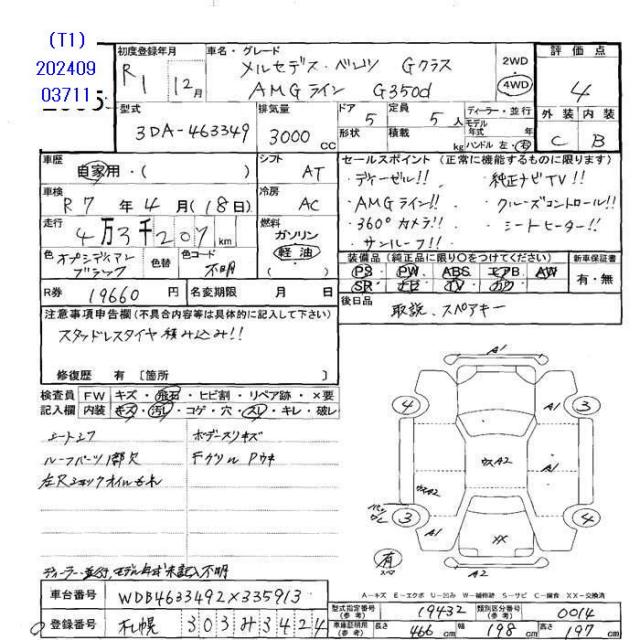 (T1)
202409
03711
初度登録年月 R1 12月
車名・グレード メルセデス・ベンツ Gクラス
AMGライン G350d
2WD
4WD
評価点
4
外装 内装
C B
型式 3DA-463349
排気量 3000 cc
ドア 5
形状
定員 5 人
積載 kg
ディーラー・並行
モデル年式 年
ハンドル 左・右
車歴 自家用・( )
シフト AT
車検 R7年4月(18日)
冷房 AC
走行 4万3千207km
燃料 ガソリン
軽油
( )
色 オブシディアンブラック
色替
色コード 不明
セールスポイント(正常に機能するものに限ります)
・ディーゼル!! ・純正ナビTV!!
・AMGライン!! ・クルーズコントロール!!
・360°カメラ!! ・シートヒーター!!
・サンルーフ!!
装備品(純正品に限り○をつけてください)
PS PW ABS エアB AW
SR ナビ TV カワ
新車保証書
有・無
R券 19660 円
名変期限 月 日
後日品 取説、スペアキー
注意事項申告欄(不具合内容等は具体的に記入して下さい)
スタッドレスタイヤ積み込み!!
修復歴 有〔箇所 〕
検査員記入欄
FW キズ・飛石・ヒビ割・リペア跡・×要
内装 キズ・汚レ・コゲ・穴・スレ・キレ・破レ
ボデースリキズ
ルーフパーツ1部欠
FグリルPウキ
左Rショックオイルもれ
ディーラー・並行、モデル年式未記入不明
A1
4
A1
3
ウスA2
A1
ウスA2
3
A1
XX
4
有
A2
A-キズ E-エクボ U-凹み W-補修跡 S-サビ C-腐食 XX-交換済
車台番号 WDB4633492X335913
登録番号 札幌 303み3424
型式指定番号(参考) 19432
類別区分番号(参考) 0014
車庫証明用(参考) 長さ 466 cm 幅 198 cm 高さ 197 cm